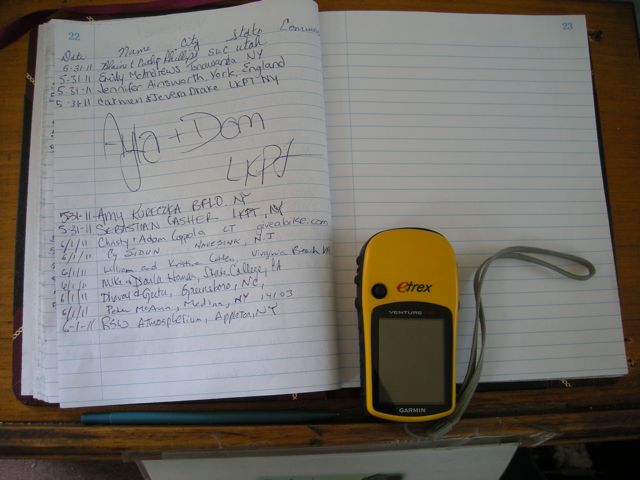 22
23
Date Name City State Comments
5-31-11 Blaine & Cathy Phillips SLC Utah
5-31-11 Emily McAndrews Tonawanda NY
5-31-11 Jennifer Ainsworth, York, England
5-31-11 Carmen & Severa Drake LKPT NY
Ayla + Dom
LKPT
5-31-11 Amy KOPECZKA BFLO. NY
5-31-11 SEBASTIAN CASHER LKPT, NY
6/1/11 Christy + Adam Coppola CT giveabike.com
6/1/11 Cy SIDUN NAVESINK, N.J
6/1/11 William and Kristine Cohen, Virginia Beach VA
6/1/11 Mike & Darla Homan, State College, PA
6/1/11 Dhaval & Geetu, Greensboro, NC,
6/1/11 Pete McAnn, Medina, NY 14103
6-1-11 RSW Atmospherium, Appleton, NY
etrex
VENTURE
GARMIN